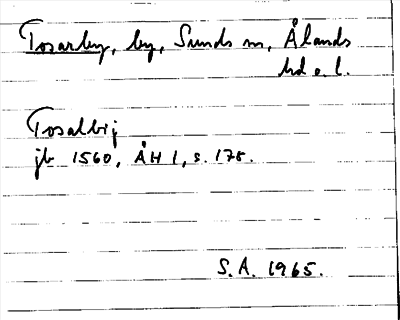 Tosarby, by, Sunds sn, Ålands
hd o. l.
Tosalbij
jb 1560, ÅH 1, s. 178.
S.A. 1965.